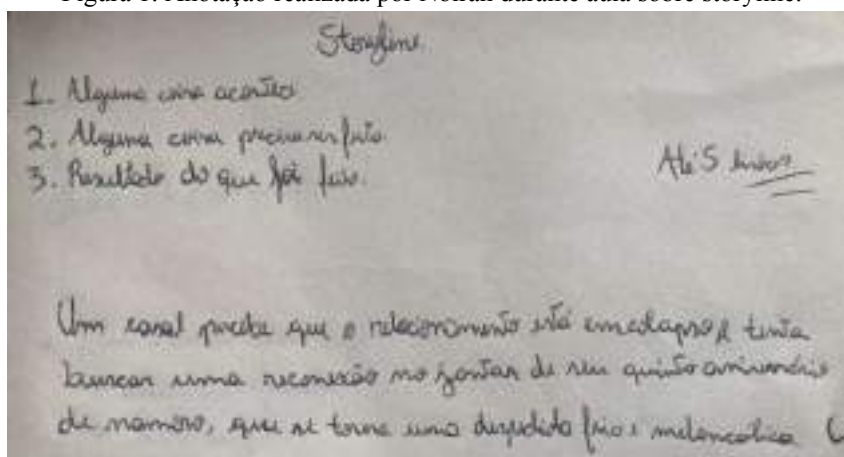 Figura 1: Anotação realizada por Nolran durante aula sobre storyline.
Storyline.
1. Alguma coisa acontece
2. Alguma coisa precisa ser feito.
3. Resultado do que foi feito.
Até 5 linhas
Um casal percebe que o relacionamento está em colapso e tenta
buscar uma reconexão no jantar de seu quinto aniversário
de namoro, que se torna uma despedida fria e melancólica